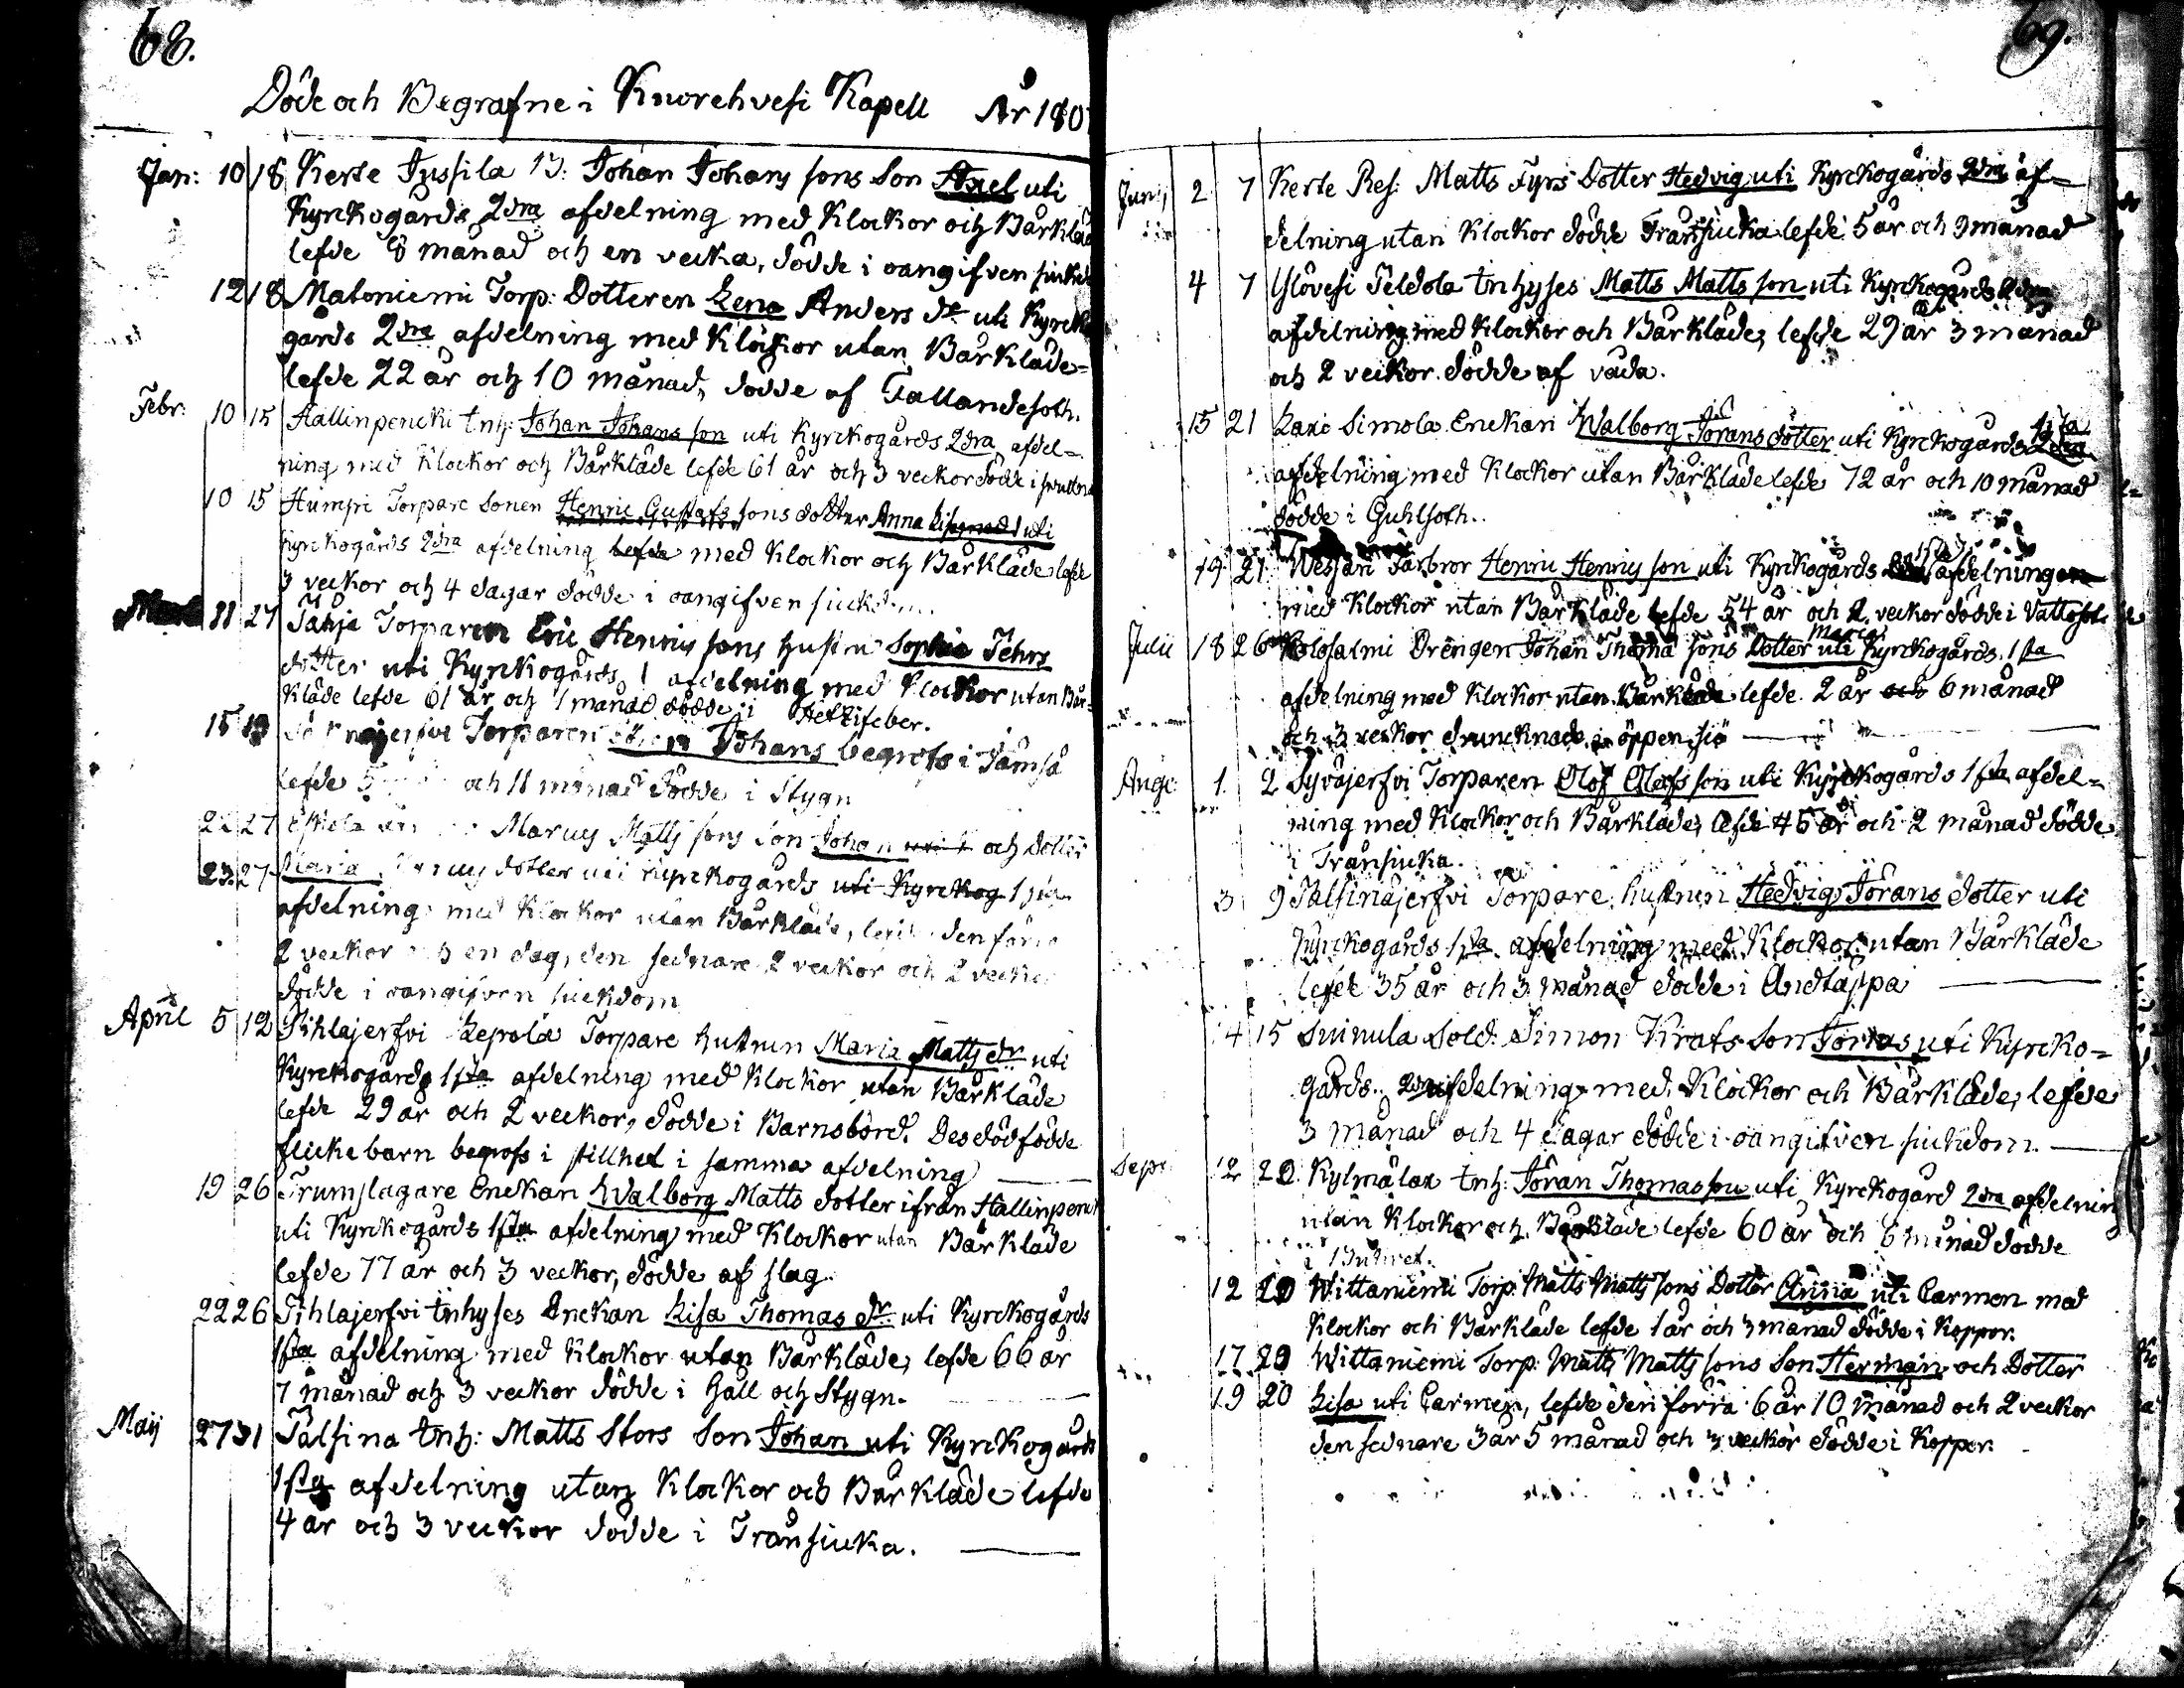 68.
Döde och Begrafne i Knorehvesi Kapell År 180
Jan: 10 18 Kerte Jussila B: Johan Johans sons Son Axel uti
Kyrckogårds 2dra afdelning med Klockor och Bårkläde
lefde 8 månad och en vecka, dödde i oangifven siukdom
12 18 Matoniemi Torp: Dotteren Lena Anders dr uti Kyrcko
gårds 2dra afdelning med Klockor utan Bårkläde
lefde 22 år och 10 månad, dödde af Fallandesoth.
Febr: 10 15 Hallinpencki Inh: Johan Johans son uti Kyrckogårds 2dra afdel=
ning med Klockor och Bårkläde lefde 61 år och 3 veckor dödde i
10 15 Humpi Torpare Sonen Henric Gustafs sons dotter Anna Lisa uti
Kyrckogårds 2dra afdelning lefde med Klockor och Bårkläde lefde
3 veckor och 4 dagar dödde i oangifven siuckdom
11 27 Torparen Eric Henrics sons hustru Sophia
dotter uti Kyrckogårds 1 afdelning med Klockor utan Bår=
kläde lefde 61 år och 1 månad dödde i Hettsifeber.
15 19 Torparen Johans begrofs i Jämsä
lefde 5 och 11 månad dödde i Stygn
22 27 Marcus Matts sons Son Johan uti K och dotter
23. 27 Maria Marcus dotter uti Kyrckogårds uti Kyrckog 1sta
afdelning med Klockor utan Bårkläde, lefde den förra
2 veckor och en dag, den sednare 2 veckor och 2 vecka
dödde i oangifven siuckdom
April 5 12 Pihlajerfvi Lepola Torpare hustrun Maria Matts dr uti
Kyrckogårds 1sta afdelning med Klockor utan Bårkläde
lefde 29 år och 2 veckor, dödde i Barnsbörd. Des dödfödde
flickebarn begrofs i stillhet i samma afdelning
19 26 Trumslagare Enckan Walborg Matts dotter ifrån Hallinpenck
uti Kyrckogårds 1sta afdelning med Klockor utan Bårkläde
lefde 77 år och 3 veckor, dödde af slag.
22 26 Pihlajerfvi Inhyses Enckan Lisa Thomas dr uti Kyrckogårds
1sta afdelning med Klockor utan Bårkläde, lefde 66 år
7 månad och 3 veckor dödde i Håll och Stygn.
Maij 27 31 Palsina Inh: Matts Stors Son Johan uti Kyrckogårds
1sta afdelning utan Klockor och Bårkläde lefde
4 år och 3 veckor dödde i Trånsiuka.
69.
Junii 2 7 Kerte Res: Matts Fyrs Dotter Hedvig uti Kyrckogårds 2dra af=
delning utan Klockor dödde Trånsiucka lefde 5 år och 9 månad
4 7 Ylövesi Teldola Inhyses Matts Matts son uti Kyrckogårds 2dra
afdelning med Klockor och Bårkläde, lefde 29 år 3 månad
och 2 veckor. dödde af våda.
15 21 Simola Enckan Walborg Jörans dotter uti Kyrckogårds 2dra 1sta
afdelning med Klockor utan Bårkläde lefde 72 år och 10 månad
dödde i Guhlsoth.
19 21 Wessari Farbror Henric Henrics son uti Kyrckogårds 1sta afdelningen
med Klockor utan Bårkläde lefde 54 år och 2 veckor dödde i Vattosot
Julii 18 26 Kolosalmi Drängen Johan Thoma sons Dotter Maria uti Kyrckogårds 1sta
afdelning med Klockor utan Bårkläde lefde 2 år och 6 månad
och 3 veckor druncknade i öppen siö
Aug: 1. 2 Syväjerfvi Torparen Olof Olofs son uti Kyrckogårds 1sta afdel=
ning med Klockor och Bårkläde, lefde 45 år och 2 månad dödde
i Trånsiucka.
3 9 Palsinajerfvi Torpare hustrun Hedvig Jörans dotter uti
Kyrckogårds 1sta afdelning med Klockor utan Bårkläde
lefde 35 år och 3 månad dödde i Andtäppa
4 15 Suinula Sold: Simon Krats Son uti Kyrcko=
gårds 2dra afdelning med Klockor och Bårkläde, lefde
3 månad och 4 dagar dödde i oangifven siuckdom.
Sept: 12 20 Kylmälax Inh: Jöran Thomas son uti Kyrckogård 2dra afdelning
utan Klockor och Bårkläde lefde 60 år och 6 månad dödde
12 20 Wittaniemi Torp: Matts Matts sons Dotter Anna uti Carmen med
Klockor och Bårkläde lefde 1 år och 3 månad dödde i Koppor.
17 20 Wittaniemi Torp: Matts Matts sons Son Herman och Dotter
19 20 Lisa uti Carmen, lefde den förra 6 år 10 månad och 2 veckor
den sednare 3 år 5 månad och 3 veckor dödde i Koppor.